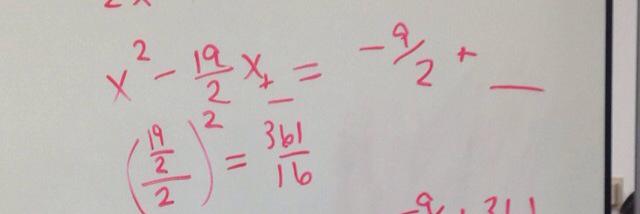 x² - 19/2 x + _ = -9/2 + _
((19/2)/2)² = 361/16